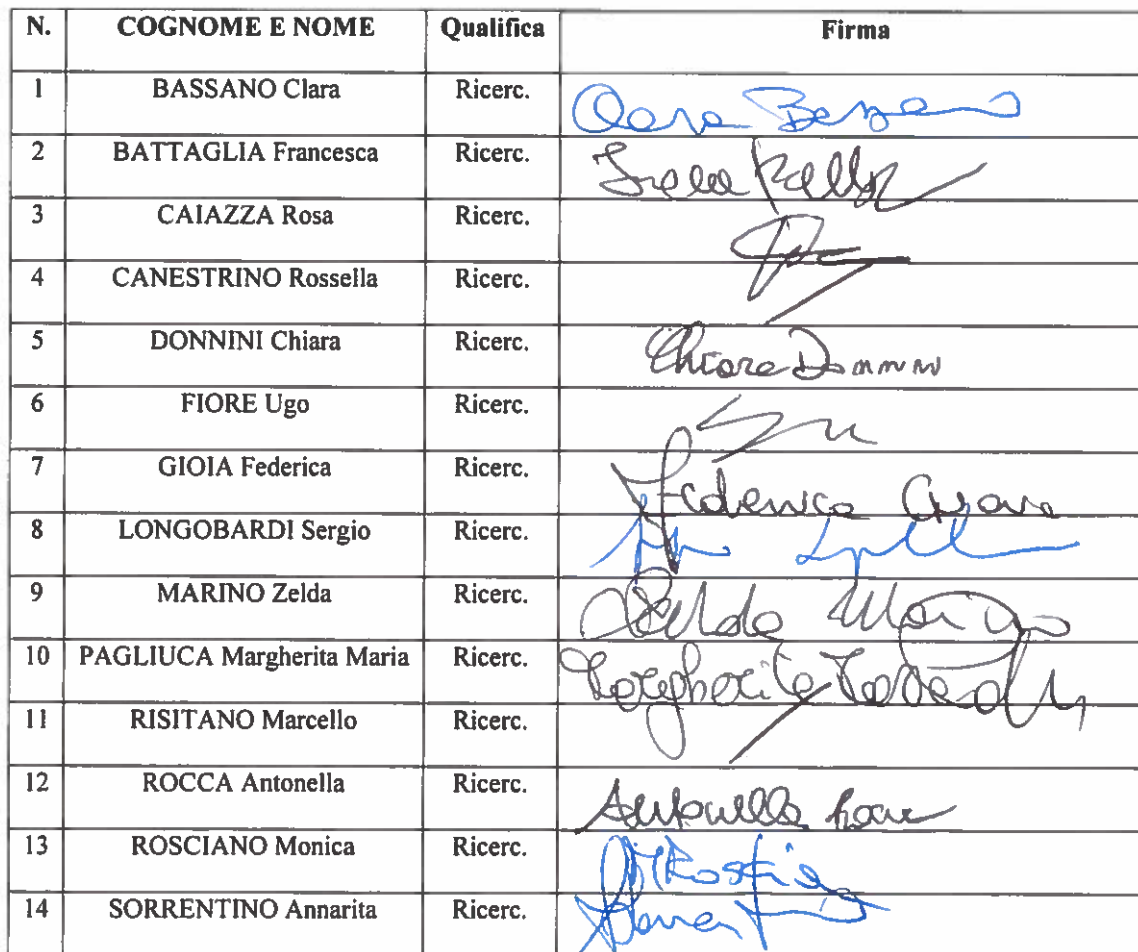 N. COGNOME E NOME Qualifica Firma
1 BASSANO Clara Ricerc.
2 BATTAGLIA Francesca Ricerc.
3 CAIAZZA Rosa Ricerc.
4 CANESTRINO Rossella Ricerc.
5 DONNINI Chiara Ricerc. Chiara Donnini
6 FIORE Ugo Ricerc.
7 GIOIA Federica Ricerc. Federica Gioia
8 LONGOBARDI Sergio Ricerc.
9 MARINO Zelda Ricerc. Zelda Marino
10 PAGLIUCA Margherita Maria Ricerc. Margherita
11 RISITANO Marcello Ricerc.
12 ROCCA Antonella Ricerc. Antonella Rocca
13 ROSCIANO Monica Ricerc.
14 SORRENTINO Annarita Ricerc.